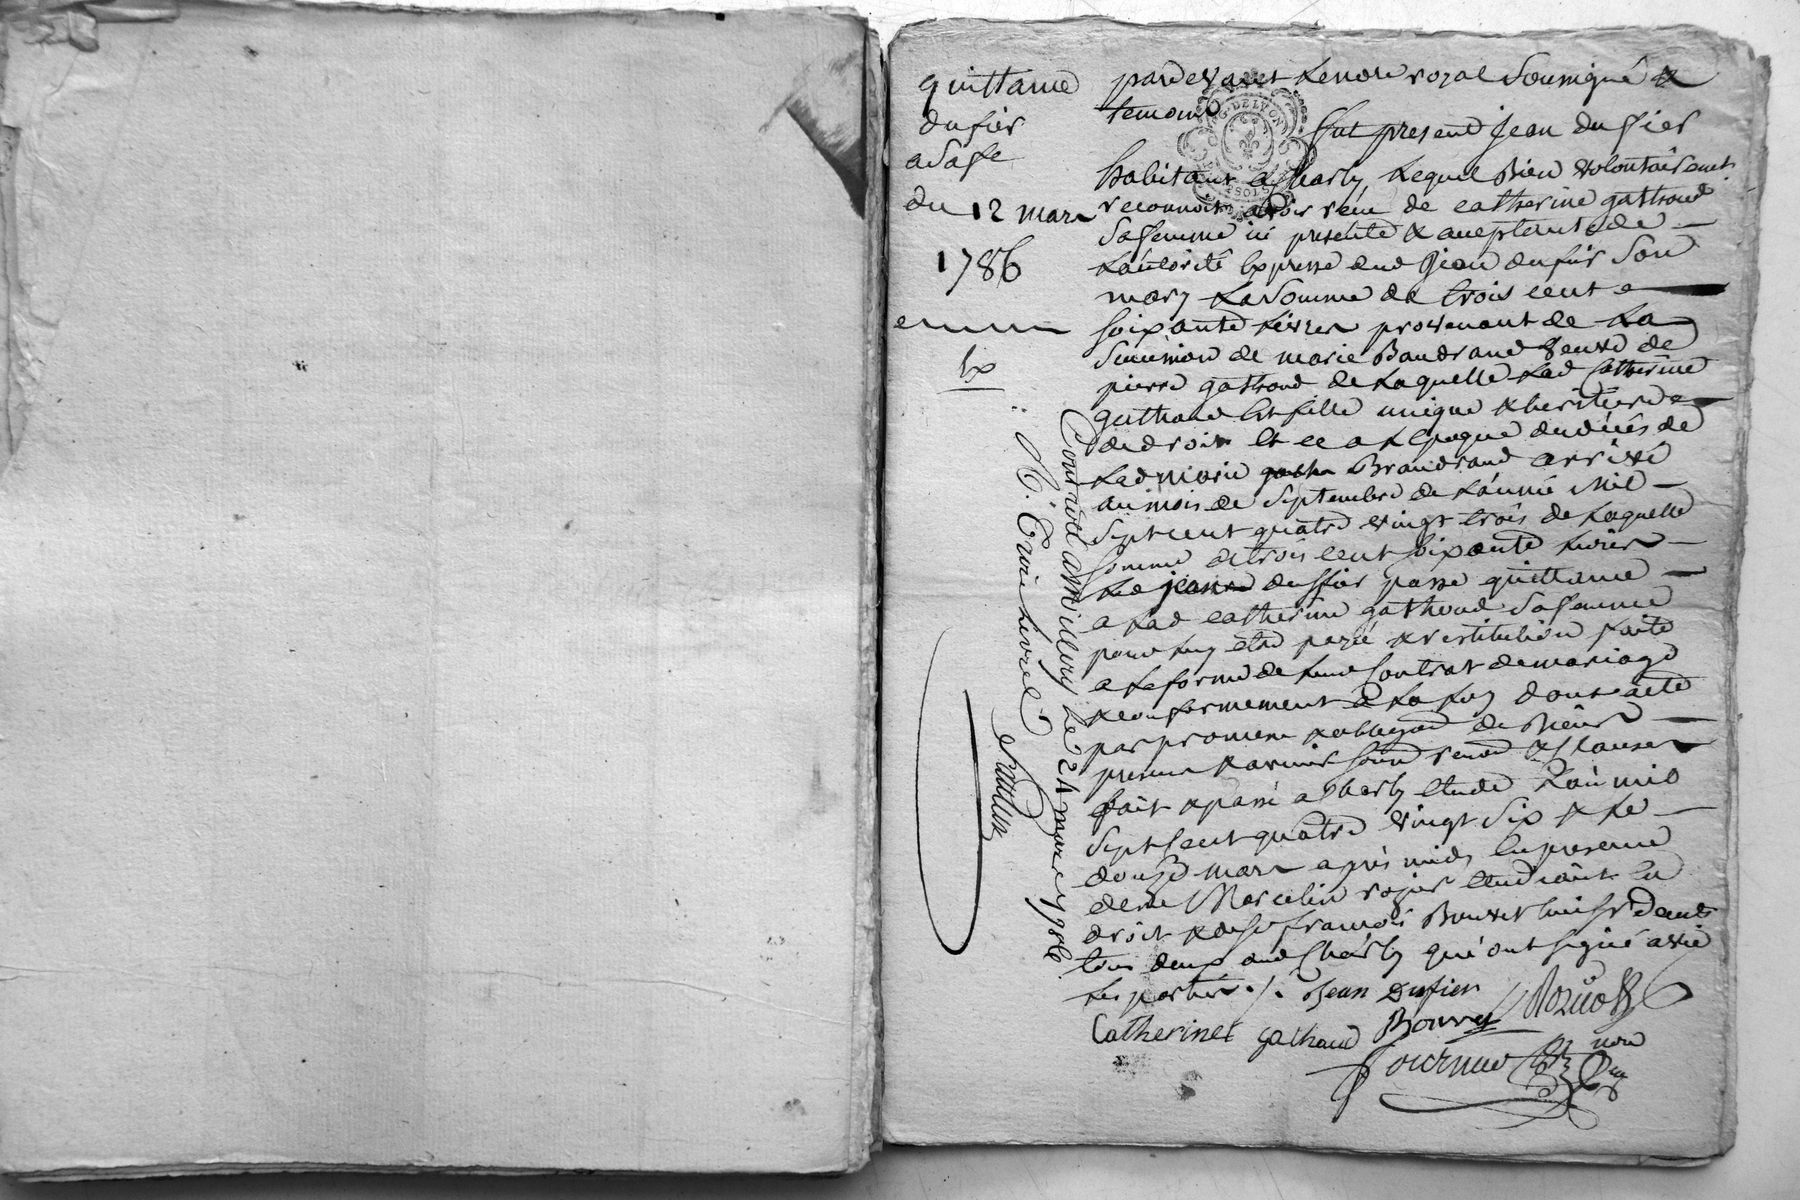 quittance
dufier
a sa fe
du 12 mars
1786
Ex
pardevant Le nore royal Soussigné &
temoins
fut present Jean dufier
habitant a Charly Lequel Bien volontairement
reconnoit avoir recu de catherine gathaud
Sa femme ici presente & acceptante de
Lautorité Expresse dud Jean dufier Son
mary La Somme de trois cent
soixante Livres provenant de La
Succession de marie Baudrand veuve de
pierre gathaud de Laquelle Lad Catherine
gathaud Est fille unique & heritiere
de droit Et ce a Lepoque du décès de
Lad marie Braudrand arrivé
au mois de Septembre de Lannée Mil
Sept cent quatre vingt trois de Laquelle
Somme de trois cent soixante Livres
Led jean dufier passe quittance
a Lad catherine gathaud Sa femme
pour Luy etre payé & restitution faite
a La forme de Leur Contrat de mariage
& conformement a La Loy dont acte
par promesse & obligaon de Biens
presens & avenir Soum renon & Clauses
fait & passé a Charly etude Lan mil
Sept Cent quatre vingt Six & Le
douze mars après midy En presence
de me Marcelin rozier etudiant En
droit & de Sr francois Bouvet huissr dents
tous deux aud Charly qui ont signé avec
Les parties ./. Jean Dufier
Catherinet gathaud Bouvet
nore
Controllé a Millery Le 24 mars 1786
R. Trois Livres
DE LYON